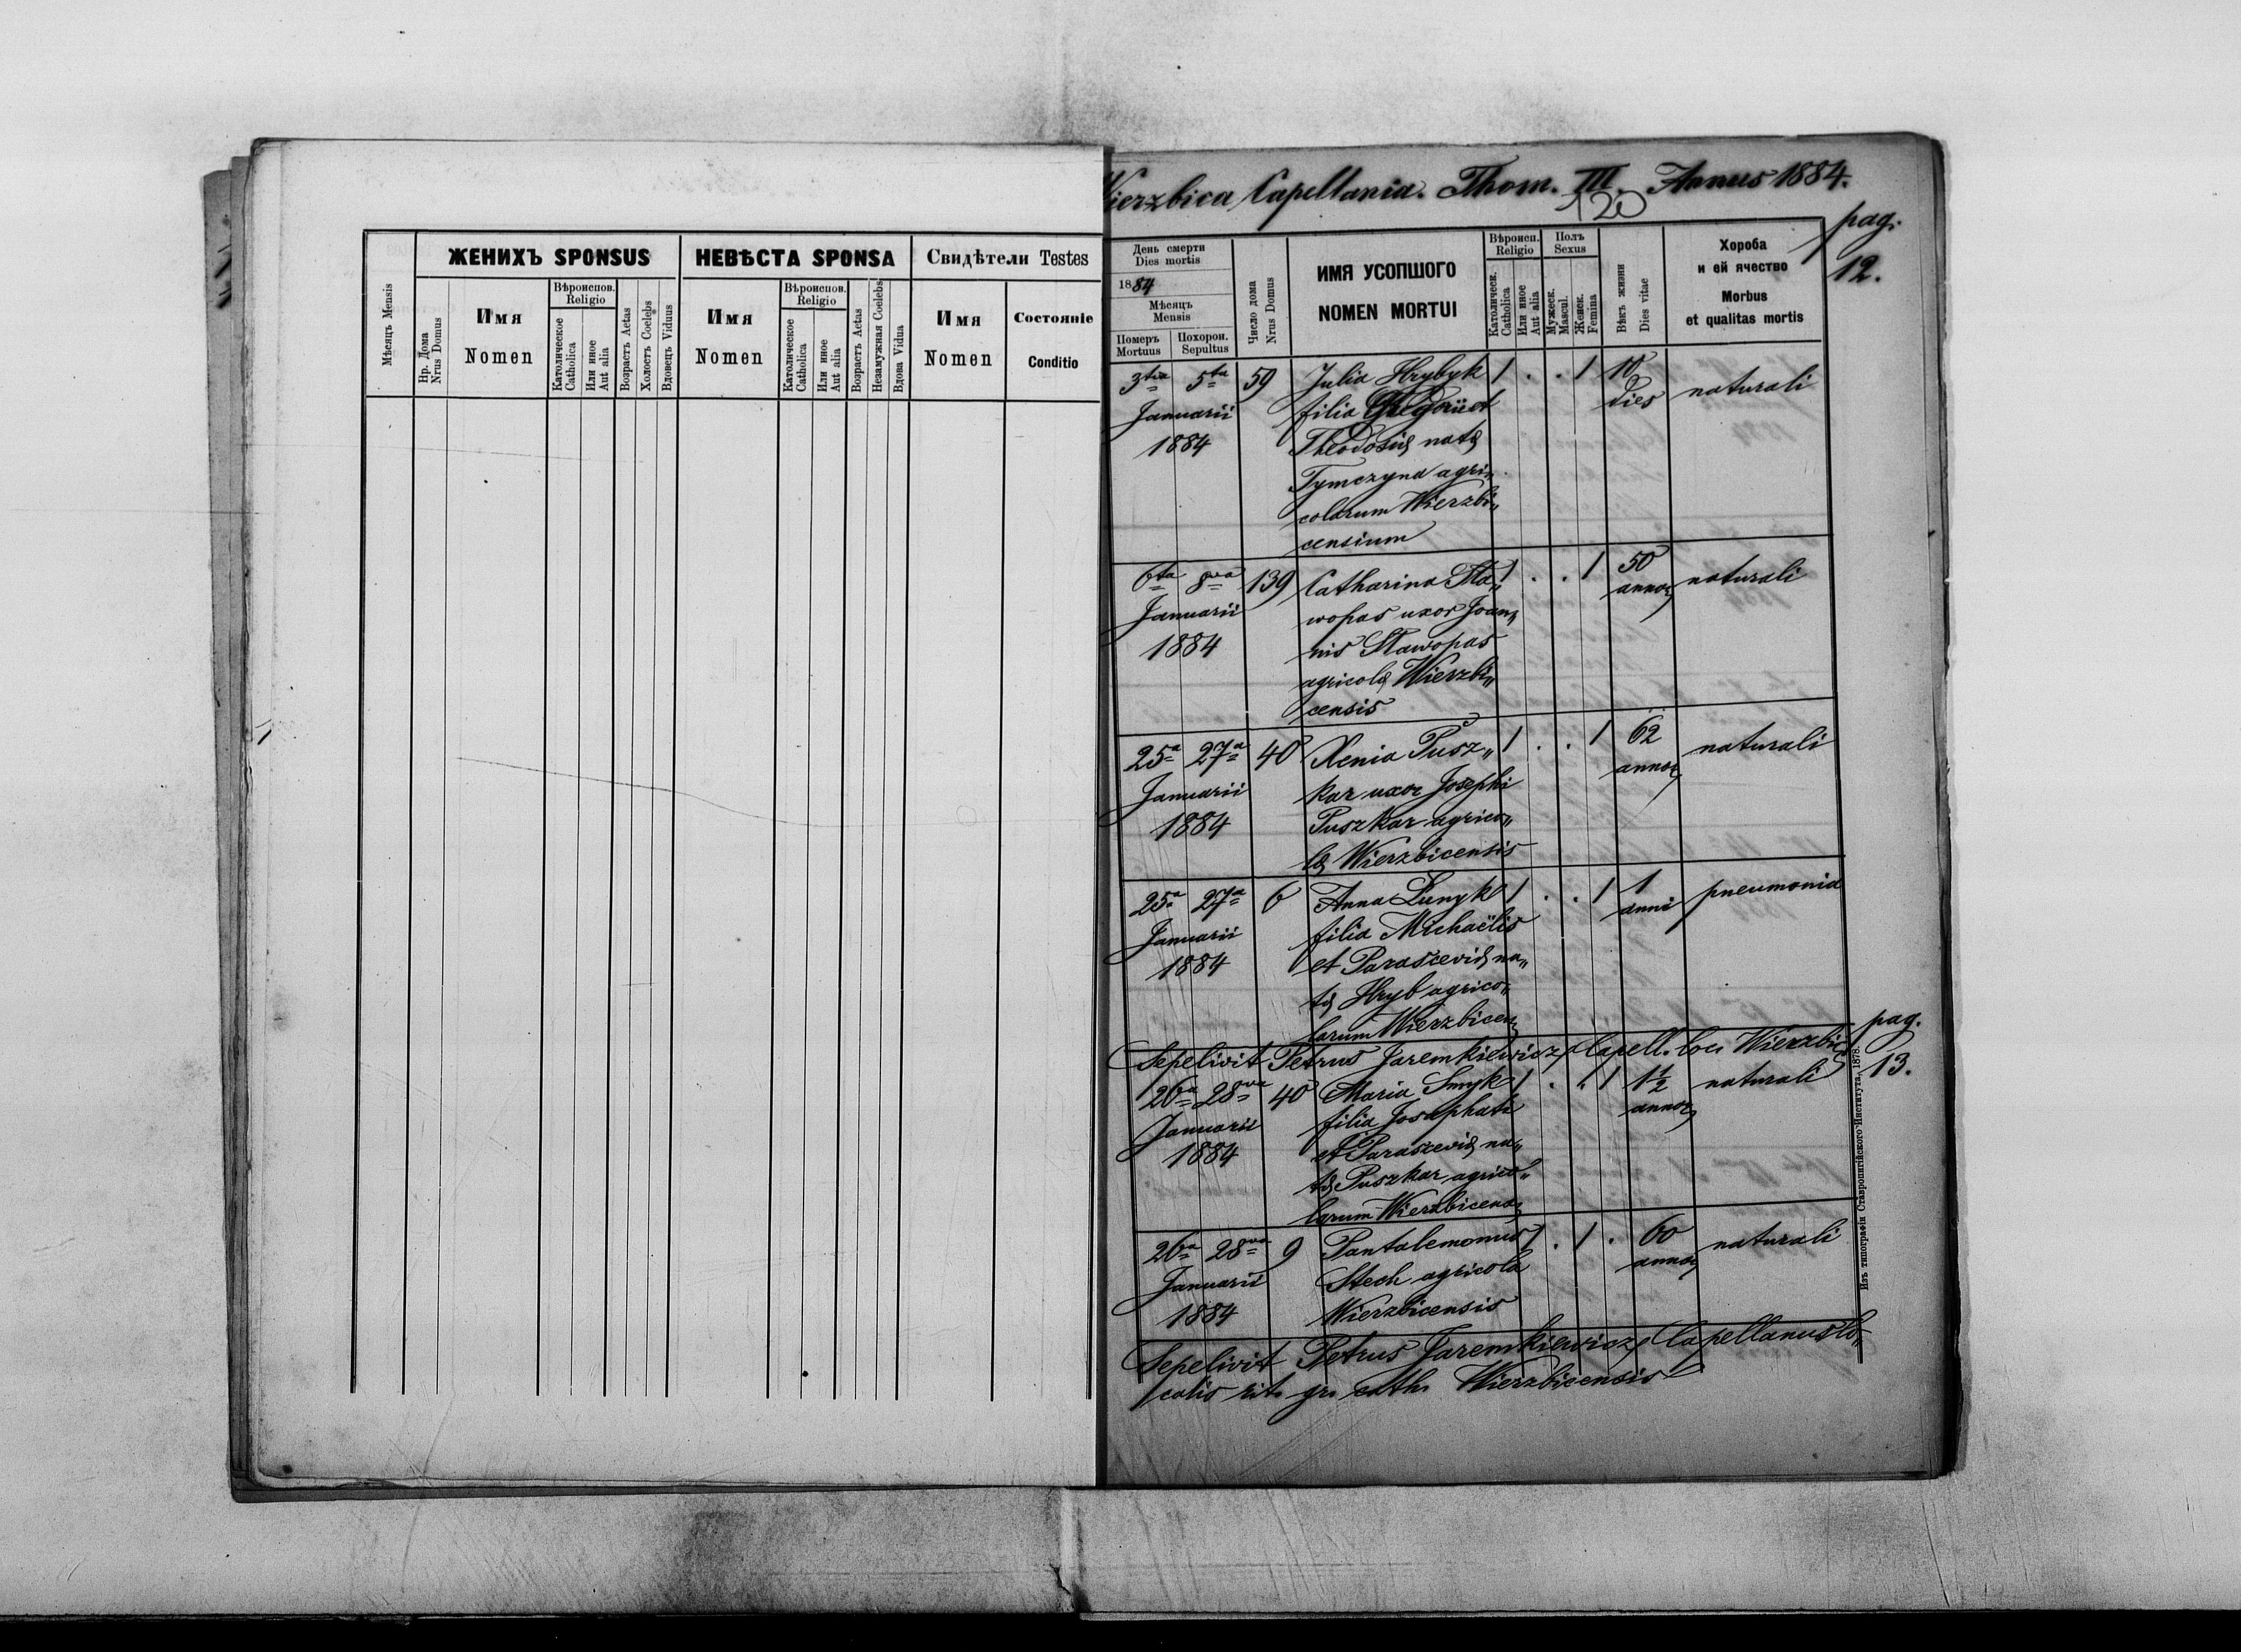 ЖЕНИХЪ SPONSUS
НЕВѢСТА SPONSA
Свидѣтели Testes
Мѣсяцъ Mensis
Нр. Дома
Nrus Domus
Имя
Nomen
Вѣроиспов.
Religio
Католическое
Catholica
Или иное
Aut alia
Возрастъ Aetas
Холостъ Coelebs
Вдовецъ Viduus
Имя
Nomen
Вѣроиспов.
Religio
Католическое
Catholica
Или иное
Aut alia
Возрастъ Aetas
Незамужная Coelebs
Вдова Vidua
Имя
Nomen
Состояніе
Conditio
Wierzbica Capellania. Thom. III. Annus 1884.
120
pag.
12.
День смерти
Dies mortis
1884
Мѣсяць
Mensis
Померъ
Mortuus
Похорон.
Sepultus
Число дома
Nrus Domus
ИМЯ УСОПШОГО
NOMEN MORTUI
Вѣроисп.
Religio
Католическ.
Catholica
Или иное
Aut alia
Полъ
Sexus
Мужеск.
Mascul.
Женск.
Femina
Вѣкъ жизни
Dies vitae
Хороба
и ей ячество
Morbus
et qualitas mortis
3tia 5ta 59 Julia Hrybyk 1 . . 1 10 naturali
Januarii filia Gregorii et dies
1884 Theodosiæ natæ
Tymczyna agri„
colarum Wierzbi„
censium
6ta 8va 139 Catharina 1 . . 1 50 naturali
Januarii wopas uxor Joan„ annor,
1884 nis
agricolæ Wierzbi„
censis
25a 27a 40 Xenia Pusz„ 1 . . 1 62 naturali
Januarii kar uxor Josephi annor,
1884 Puszkar agrico„
læ Wierzbicensis
25a 27a 6 Anna Łunyk 1 . . 1 1 pneumonia
Januarii filia Michaëlis anni
1884 et Parasceviæ na„
tæ Hryb agrico„
larum Wierzbicen,
Sepelivit Petrus Jaremkiewicz Capell. loci Wierzbic
pag.
13.
26a 28va 40 Maria Smyk 1 . . 1 1½ naturali
Januarii filia Josaphati annor,
1884 et Parasceviæ na„
tæ Puszkar agrico„
larum Wierzbicens,
26a 28va 9 Pantalemonus 1 . 1 . 60 naturali
Januarii Stech agricola annor,
1884 Wierzbicensis
Sepelivit Petrus Jaremkiewicz Capellanus lo„
calis rit. gr. cath. Wierzbicensis
Изъ типографіи Ставропигійского Института, 1878.